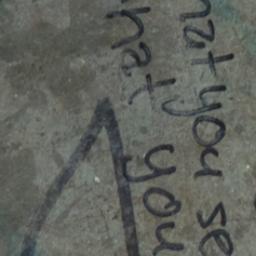 hat you se
hat you